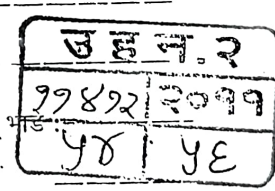 ब ह न. २
११४१२ २०११
५४ ५६